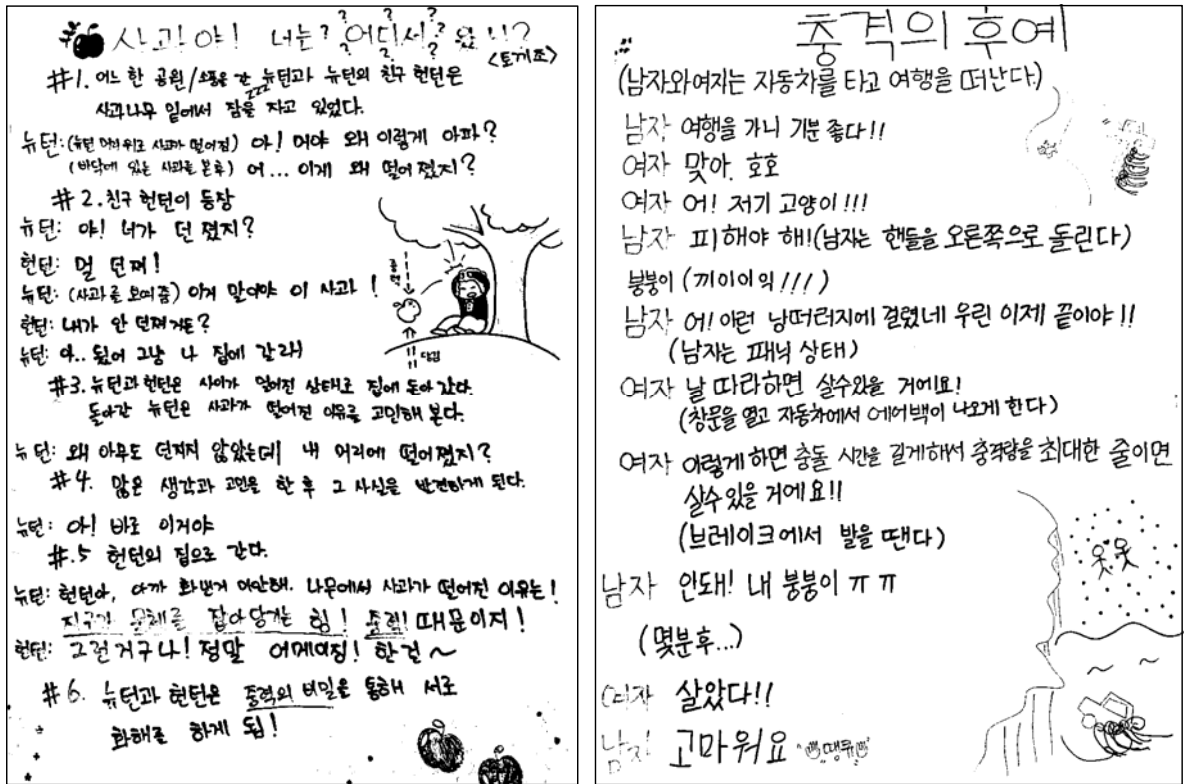 사과야! 너는? 어디서? 왔니?
<토게조>
#1. 어느 한 공원/소풍을 간 뉴턴과 뉴턴의 친구 헌턴은
사과나무 밑에서 잠을 자고 있었다.
zzz
뉴턴: (뉴턴 머리위로 사과가 떨어짐) 아! 머야 왜 이렇게 아파?
(바닥에 있는 사과를 본후) 어... 이게 왜 떨어졌지?
#2. 친구 헌턴이 등장
뉴턴: 야! 너가 던졌지?
헌턴: 멀 던져!
뉴턴: (사과를 보여줌) 이거 말이야 이 사과!
헌턴: 내가 안 던져거든?
뉴턴: 아.. 됬어 그냥 나 집에 갈래!
중력
#3. 뉴턴과 헌턴은 사이가 멀어진 상태로 집에 돌아갔다.
돌아간 뉴턴은 사과가 떨어진 이유를 고민해 본다.
뉴턴: 왜 아무도 던지지 않았는데 내 머리에 떨어졌지?
#4. 많은 생각과 고민을 한 후 그 사실을 발견하게 된다.
뉴턴: 아! 바로 이거야
#.5 헌턴의 집으로 간다.
뉴턴: 헌턴아, 아까 화낸거 미안해. 나무에서 사과가 떨어진 이유는!
지구가 물체를 잡아당기는 힘! 중력! 때문이지!
헌턴: 그런거구나! 정말 어메이징! 한걸~
#6. 뉴턴과 헌턴은 중력의 비밀을 통해 서로
화해를 하게 됨!
충격의 후예
(남자와여자는 자동차를 타고 여행을 떠난다)
남자 여행을 가니 기분 좋다!!
여자 맞아. 호호
여자 어! 저기 고양이!!!
남자 피해야 해!(남자는 핸들을 오른쪽으로 돌린다)
붕붕이 (끼이이익!!!)
남자 어! 이런 낭떠러지에 걸렸네 우린 이제 끝이야!!
(남자는 패닉 상태)
여자 날 따라하면 살수있을 거에요!
(창문을 열고 자동차에서 에어백이 나오게 한다)
여자 이렇게 하면 충돌 시간을 길게해서 충격량을 최대한 줄이면
살수있을 거에요!!
(브레이크에서 발을 땐다)
남자 안돼! 내 붕붕이 ㅠㅠ
(몇분후...)
여자 살았다!!
남자 고마워요 땡큐